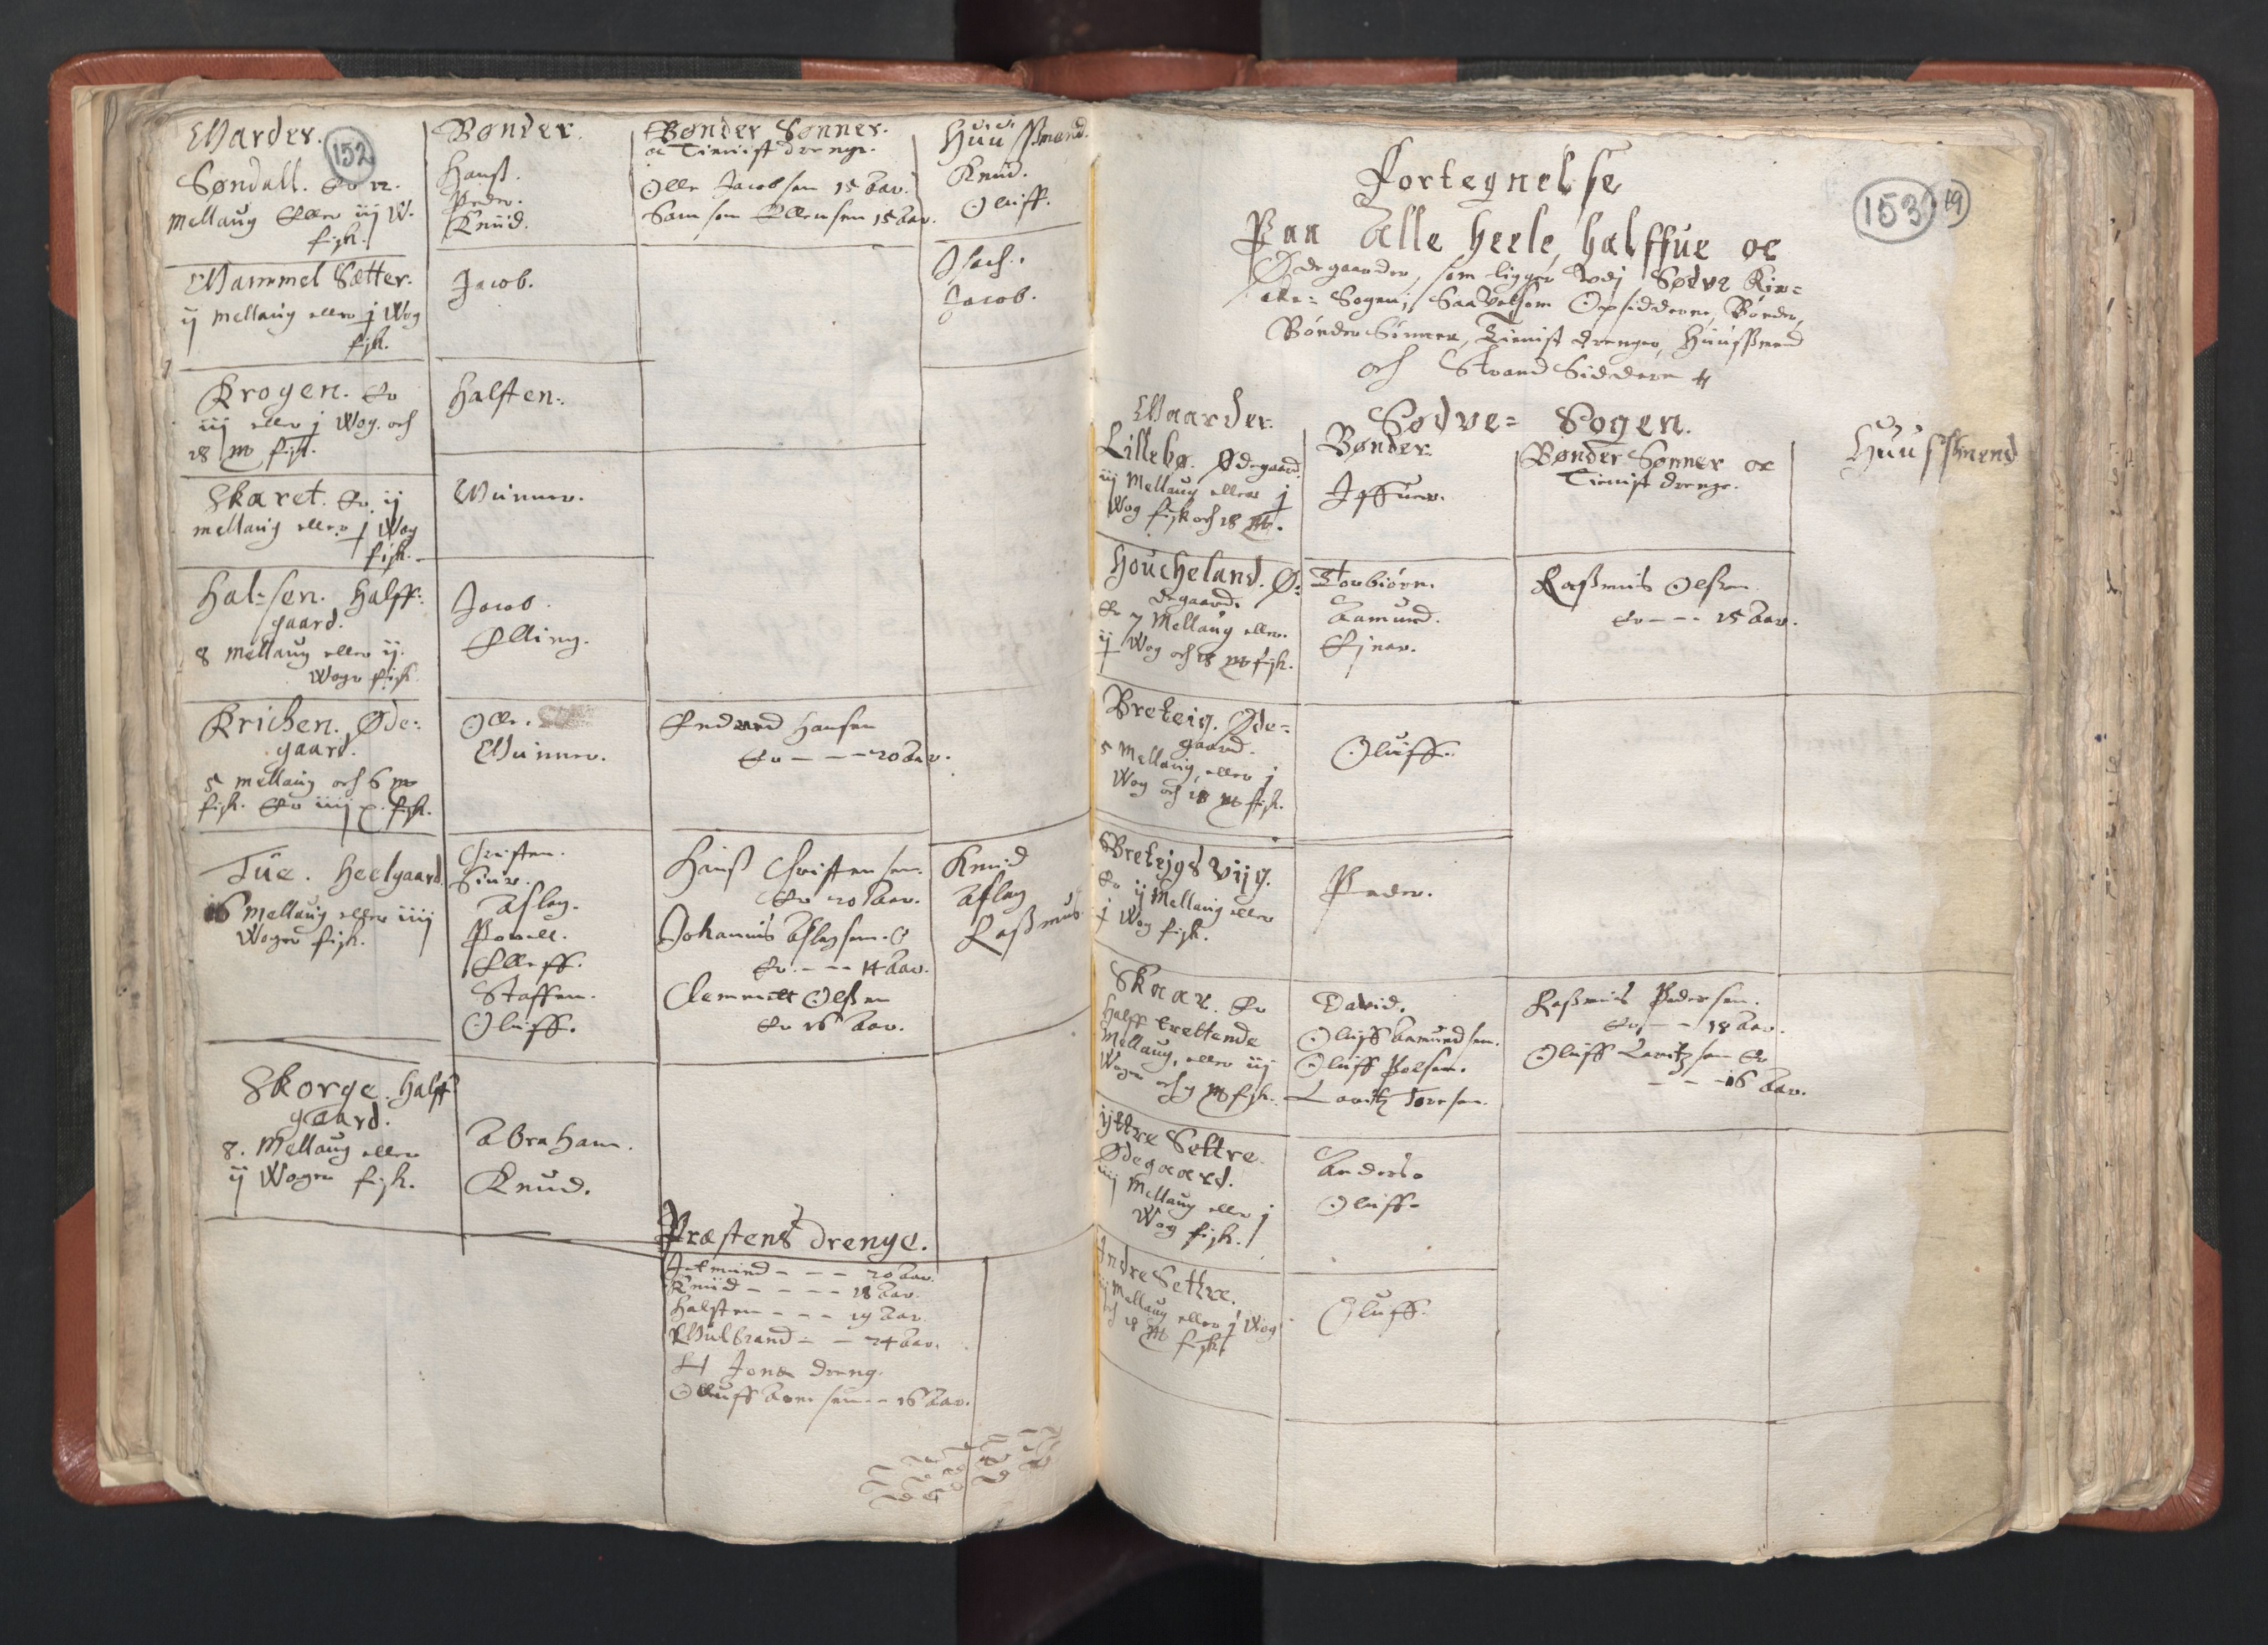 Gaarder.
152
Bønder.
Bønder Sønner.
oc Tienist drenge.
Huussmænd.
Søndall. Er 12.
Mellaug Eller iij W.
fisk.
Hanss.
Peder.
Knud.
Olle Jacobsen 15 Aar.
Samson Ellensen 15 Aar.
Knud.
Oluff.
Gammel Sætter.
ij Mellaug eller j Wog
fisk.
Jacob.
Isach.
Jacob.
Krogen. Er
iij eller j Wog. och
18 m fisk.
Halsten.
Skaret. Er ij
mellaug eller j Wog
fisk.
Gunner.
Halsen. Halff
gaard.
8 Mellaug eller ij.
Woger fisk.
Jacob.
Elling.
Krichen. Øde=
gaard.
5 mellaug och 6 m
fisk. Er iiij p. fisk.
Olle.
Gunner.
Hansen
Er - - - 20 Aar.
Tue. Heelgaard
16 Mellaug eller iiij
Woger fisk.
Christen.
Siur.
Aslag.
Powell.
Elleff.
Staffen.
Oluff.
Hanss Christensen.
Er 20 Aar.
Johannis Aslagsen.
Er - - - 14 Aar.
Clemmit Olssen
Er 16 Aar.
Knud
Aslag
Rassmus
Skorge. Halff
gaard.
8. Mellaug eller
ij Woger fisk.
Abraham.
Knud.
Præstens drenge.
Jetmund - - - 20 Aar.
Knud - - - - 18 Aar.
Halsten - - - 19 Aar.
Gulbrand - - 24 Aar.
H Jons dreng.
Oluff - - 16 Aar.
Fortegnelse
153
19
Paa Alle heele, halffue oc
Ødegaarder, som ligger udj Sødve Kir=
cke= Sogen, Saauelsom Opsidderne, Bønder,
Bønder Sønner, Tienist drenger, Huussmænd
och Strand Siddere
Gaarder.
Sødve= Sogen.
Bønder.
Bønder Sønner oc
Tienist drenge.
Huussmend
Lillebø. Ødegaard
iij Mellaug eller j
Wog fisk och 18 m.
Iffuer.
Houcheland. Ø=
degaard.
Er 7 Mellaug eller.
ij Wog och 18 m fisk.
Torbiørn.
Aamund.
Ejnar.
Rassmus Olssen
Er - - - 15 Aar.
Breteig. Øde=
gaard.
5 Mellaug, eller j
Wog och 18 m fisk.
Oluff.
Bretejgs Vijg.
Er ij Mellaug eller
j Wog fisk.
Peder.
Skaar. Er
Halff trettende
Mellaug, eller iij
Woger och 9 m fisk.
David.
Oluff Aamundsen.
Oluff Polsen.
Lauritz Toresen.
Rassmus Pedersen.
Er - - 18 Aar.
Oluff Lauritzsen Er
- - - 16 Aar.
Yttre Settre.
Ødegaard.
iiij Mellaug eller j
Wog fisk.
Anders.
Oluff.
Indre Settre.
iij Mellaug eller j Wog
och 18 m
fisk.
Oluff.